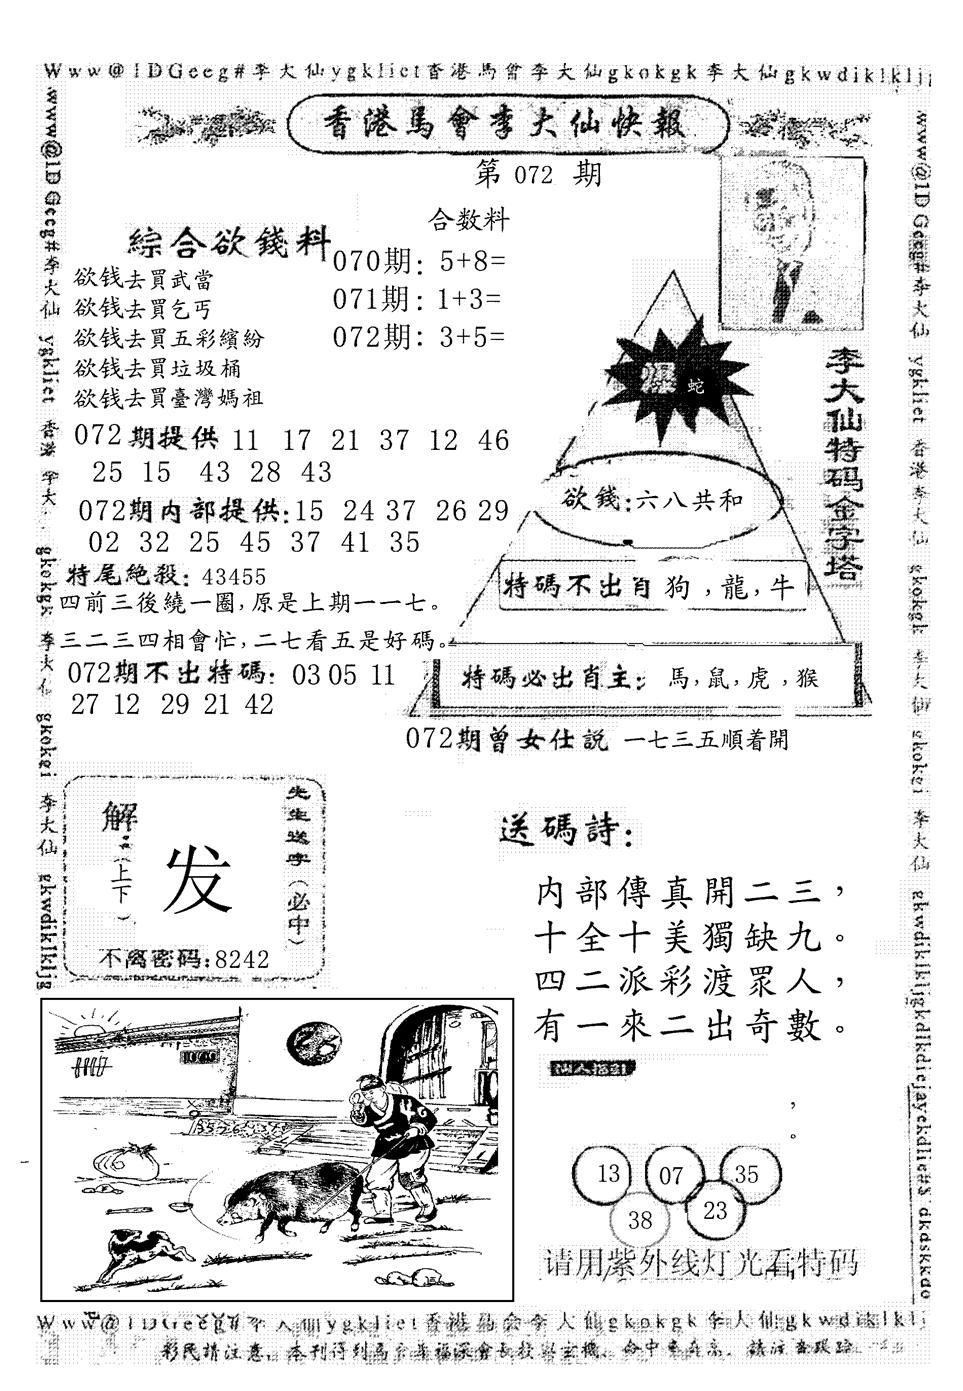 Www@1DGeeg#李大仙ygkliet香港馬會李大仙gkokgk李大仙gkwdiklklj
香港馬會李大仙快報
第 072 期
綜合欲錢料
欲钱去買武當
欲钱去買乞丐
欲钱去買五彩繽紛
欲钱去買垃圾桶
欲钱去買臺灣媽祖
合数料
070期: 5+8=
071期: 1+3=
072期: 3+5=
072期提供 11 17 21 37 12 46
25 15 43 28 43
072期内部提供:15 24 37 26 29
02 32 25 45 37 41 35
特尾絶殺: 43455
四前三後繞一圈,原是上期一一七。
三二三四相會忙,二七看五是好碼。
072期不出特碼: 03 05 11
27 12 29 21 42
李大仙特码金字塔
爆 蛇
欲錢:六八共和
特碼不出肖 狗,龍,牛
特碼必出肖主: 馬,鼠,虎,猴
072期曾女仕説 一七三五順着開
解:(上下)
发
先生送字(必中)
不离密码:8242
送碼詩:
内部傳真開二三,
十全十美獨缺九。
四二派彩渡眾人,
有一來二出奇數。
仙人指引
,
。
13 07 35
38 23
请用紫外线灯光看特码
Www@1DGeeg#李大仙ygkliet香港馬会李大仙gkokgk李大仙gkwdiklklj
彩民請注意,本刊得到